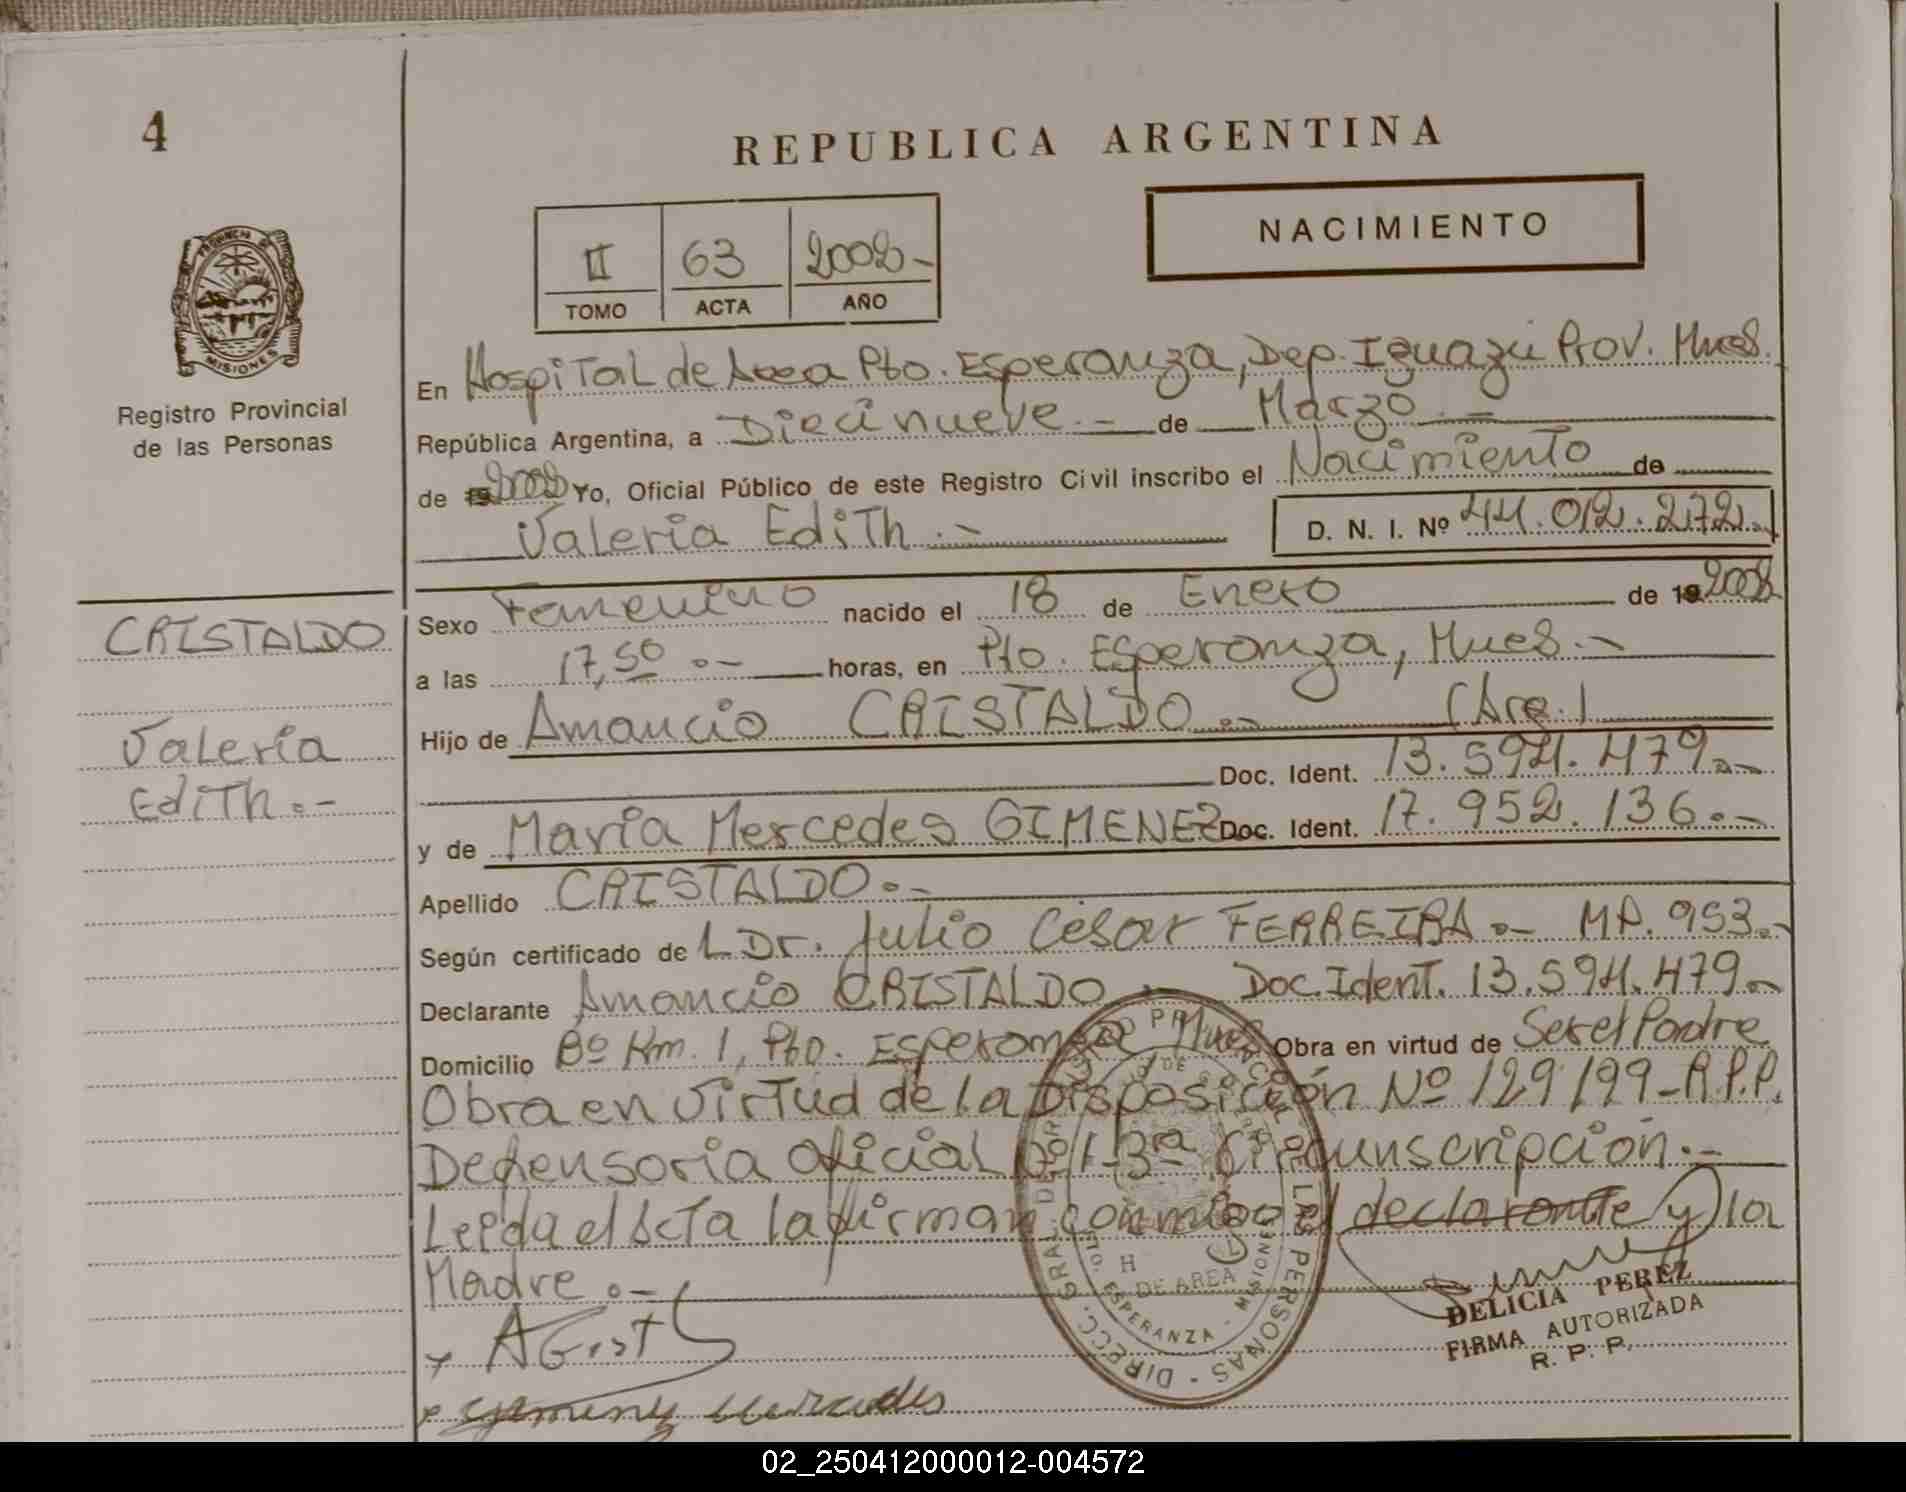 4
REPUBLICA ARGENTINA
NACIMIENTO
II 63 2002-
TOMO ACTA AÑO
PROVINCIA DE MISIONES
Registro Provincial
de las Personas
En Hospital de Area Pto. Esperanza, Dep. Iguazú Prov. Mnes.
República Argentina, a Diecinueve.- de Marzo.-
de 2002 Yo, Oficial Público de este Registro Civil inscribo el Nacimiento de
Valeria Edith.- D. N. I. Nº 44.012.272.-
Sexo Femenino nacido el 18 de Enero de 19 2002
a las 17,50.- horas, en Pto. Esperanza, Mnes.-
Hijo de Amancio CRISTALDO.- (Arg.)
Doc. Ident. 13.594.479.-
y de María Mercedes GIMENEZ Doc. Ident. 17.952.136.-
Apellido CRISTALDO.-
Según certificado de L Dr. Julio César FERREIRA.- MP. 953.-
Declarante Amancio CRISTALDO.- Doc. Ident. 13.594.479.-
Domicilio Bº Km. 1, Pto. Esperanza Mnes Obra en virtud de Ser el Padre
Obra en virtud de la Disposición Nº 129/99-R.P.P.
Defensoria Oficial Nº 1-3ra Circunscripción.-
Leída el Acta la firman conmigo el declarante y la
Madre.-
CRISTALDO
Valeria
Edith.-
DIRECC. GRAL. DEL REGISTRO PROVINCIAL DE LAS PERSONAS
DE AREA
ESPERANZA - MISIONES
DELICIA PEREZ
FIRMA AUTORIZADA
R. P. P.
Gimenez Mercedes
02_250412000012-004572